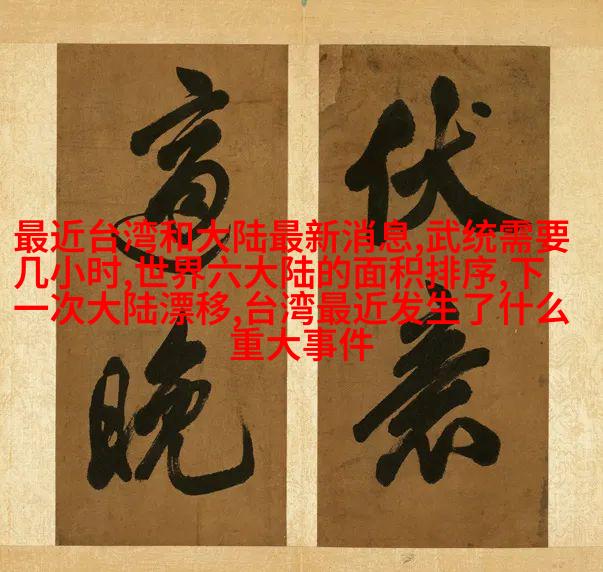 最近台湾和大陆最新消息,武统需要
几小时,世界六大陆的面积排序,下
一次大陆漂移,台湾最近发生了什么
重大事件
伏
晚